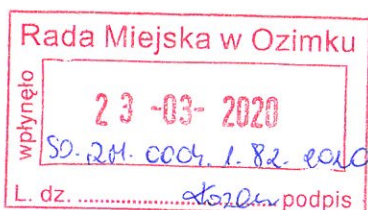 Rada Miejska w Ozimku
wpłynęło
23 -03- 2020
SO. 2M. 0004. 1. 82. 2020
L. dz. .................... podpis